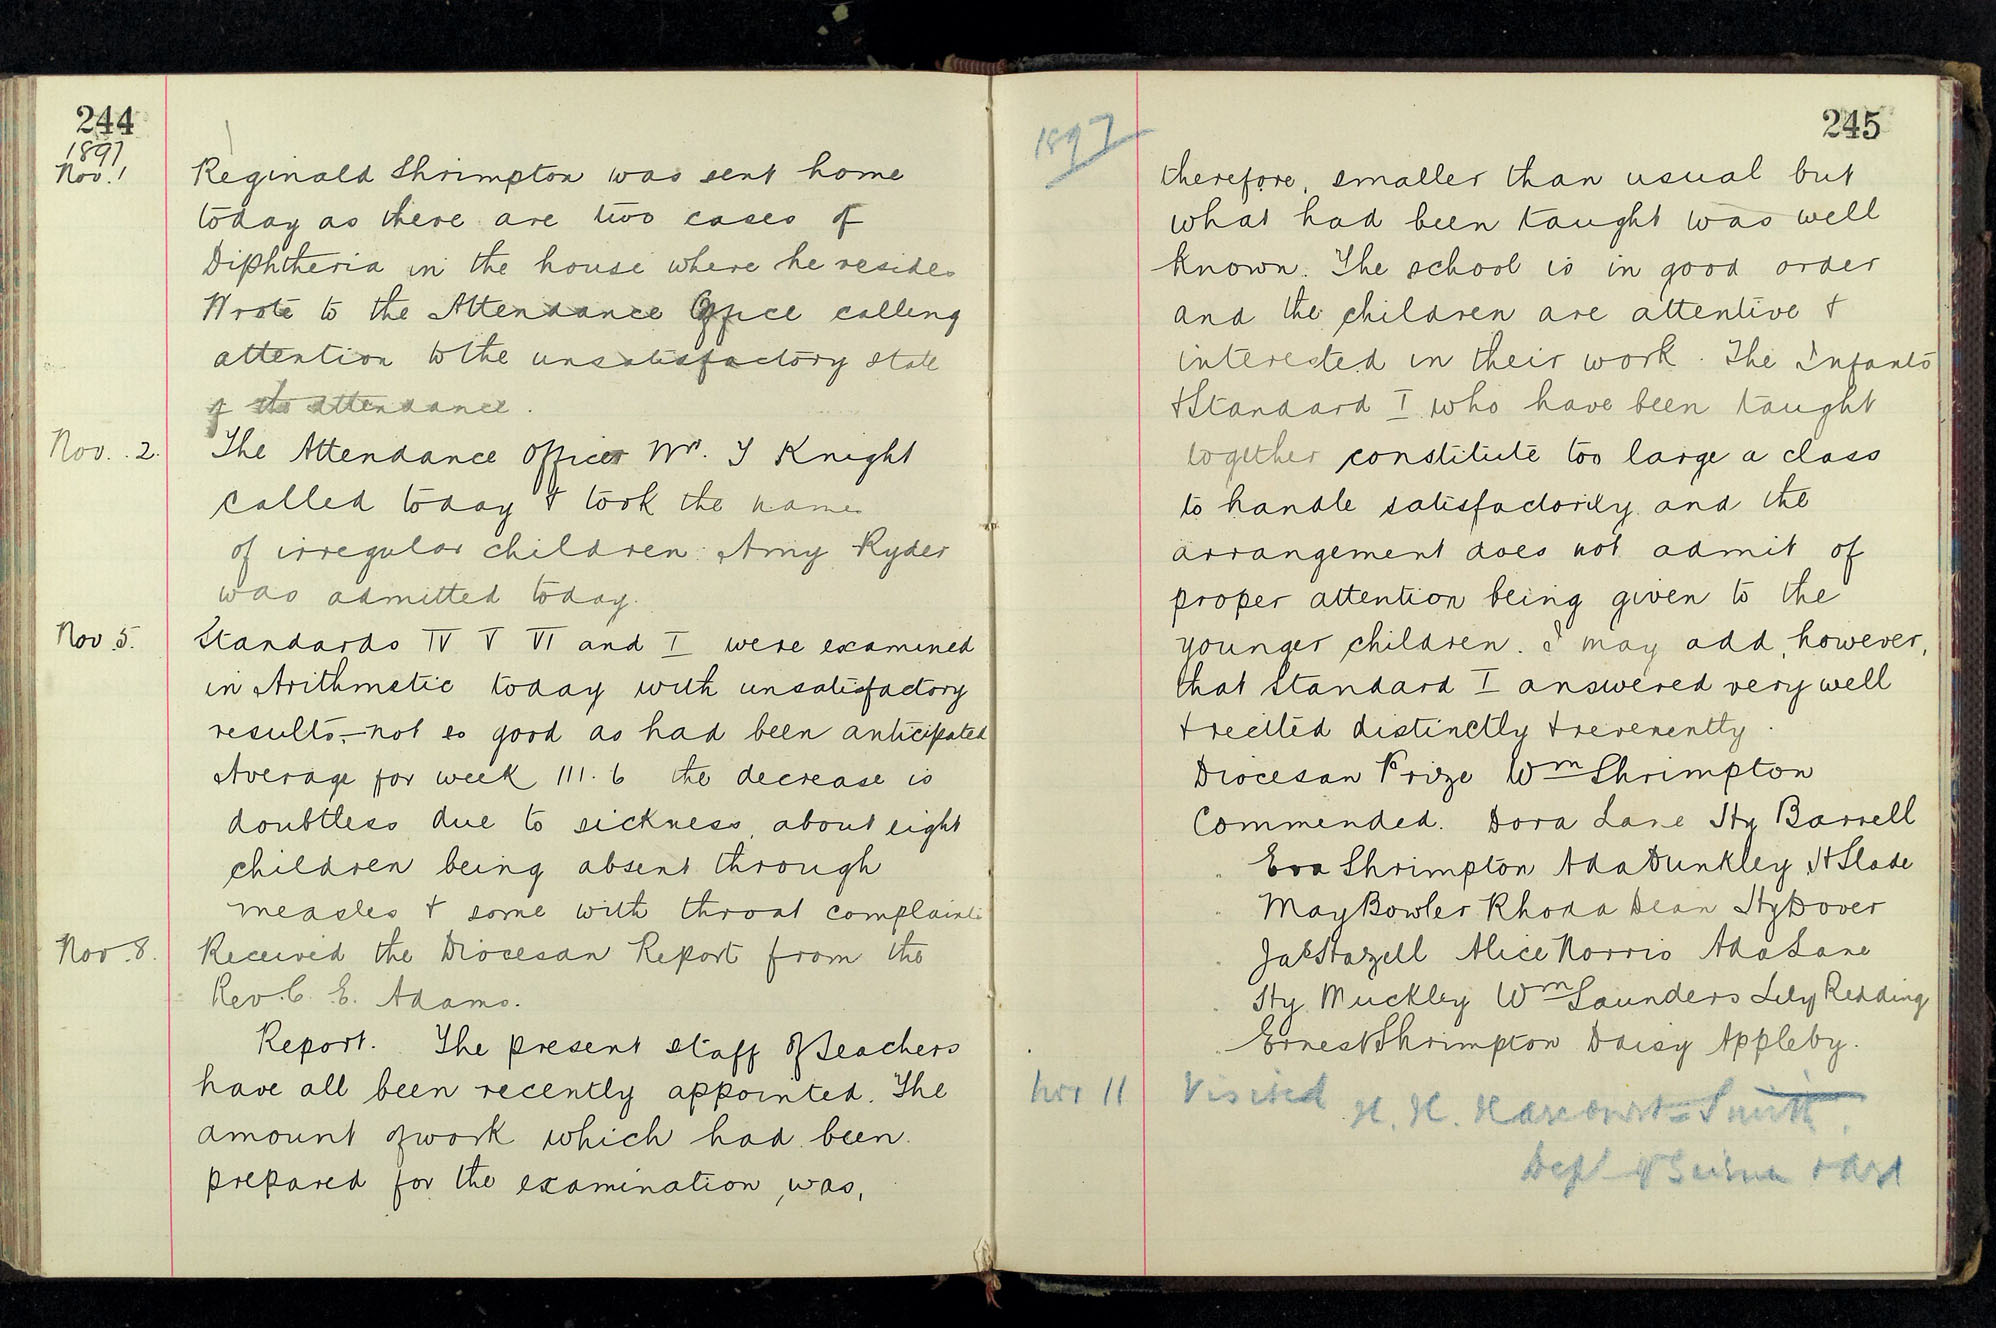 244
1897
Nov. 1
Reginald Shrimpton was sent home
today as there are two cases of
Diphtheria in the house where he resides
Wrote to the Attendance Office calling
attention to the unsatisfactory state
of the attendance.
Nov. 2.
The Attendance Officer Mr. T Knight
called today & took the names
of irregular children. Amy Ryder
was admitted today.
Nov 5.
Standards IV V VI and I were examined
in Arithmetic today with unsatisfactory
results,—not so good as had been anticipated
Average for week 111.6 the decrease is
doubtless due to sickness, about eight
children being absent through
measles & some with throat complaints
Nov. 8.
Received the Diocesan Report from the
Rev. C. E. Adams.
Report. The present staff of Teachers
have all been recently appointed. The
amount of work which had been
prepared for the examination, was,
245
1897
therefore, smaller than usual but
what had been taught was well
known. The school is in good order
and the children are attentive &
interested in their work. The Infants
& Standard I who have been taught
together constitute too large a class
to handle satisfactorily and the
arrangement does not admit of
proper attention being given to the
younger children. I may add, however,
that Standard I answered very well
& recited distinctly & reverently.
Diocesan Prize Wm Shrimpton
Commended. Dora Lane Hy Barrell
" Eva Shrimpton Ada Dunkley H Slade
" May Bowler Rhoda Dean Hy Dover
" Jas Stazell Alice Norris Ada Lane
" Hy Muckley Wm Saunders Lily Redding
" Ernest Shrimpton Daisy Appleby.
Nov 11
Visited
H. H. Harcourt-Smith.
Dept of Science & Art